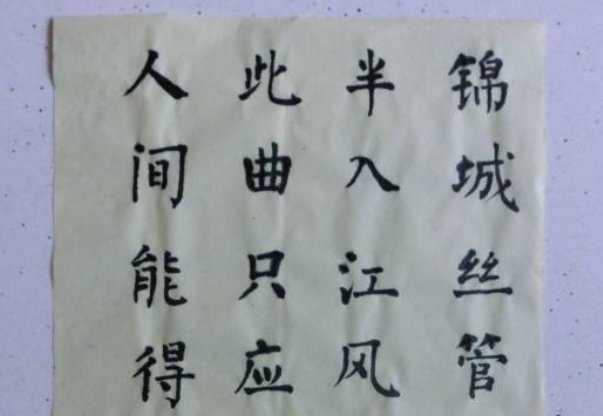 锦城丝管
半入江风
此曲只应
人间能得